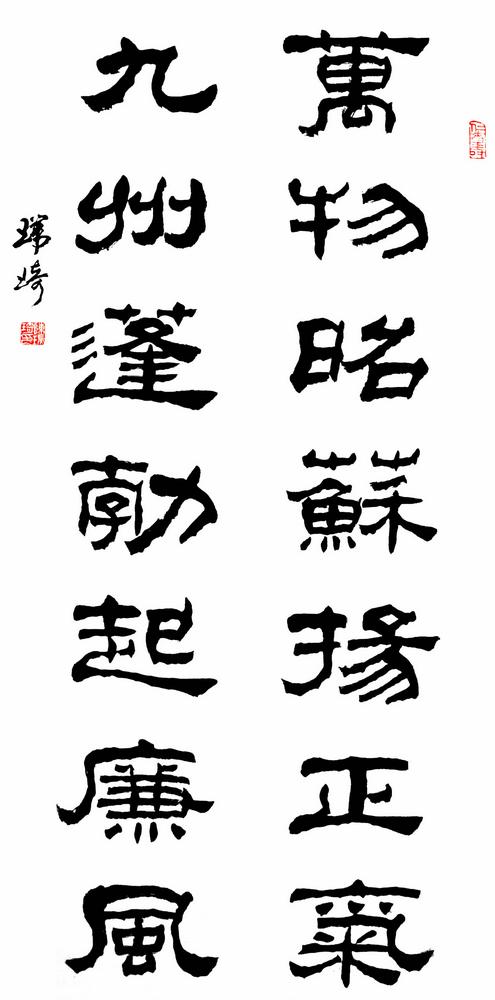 萬物昭蘇揚正氣
九州蓬勃起廉風
瑞琦